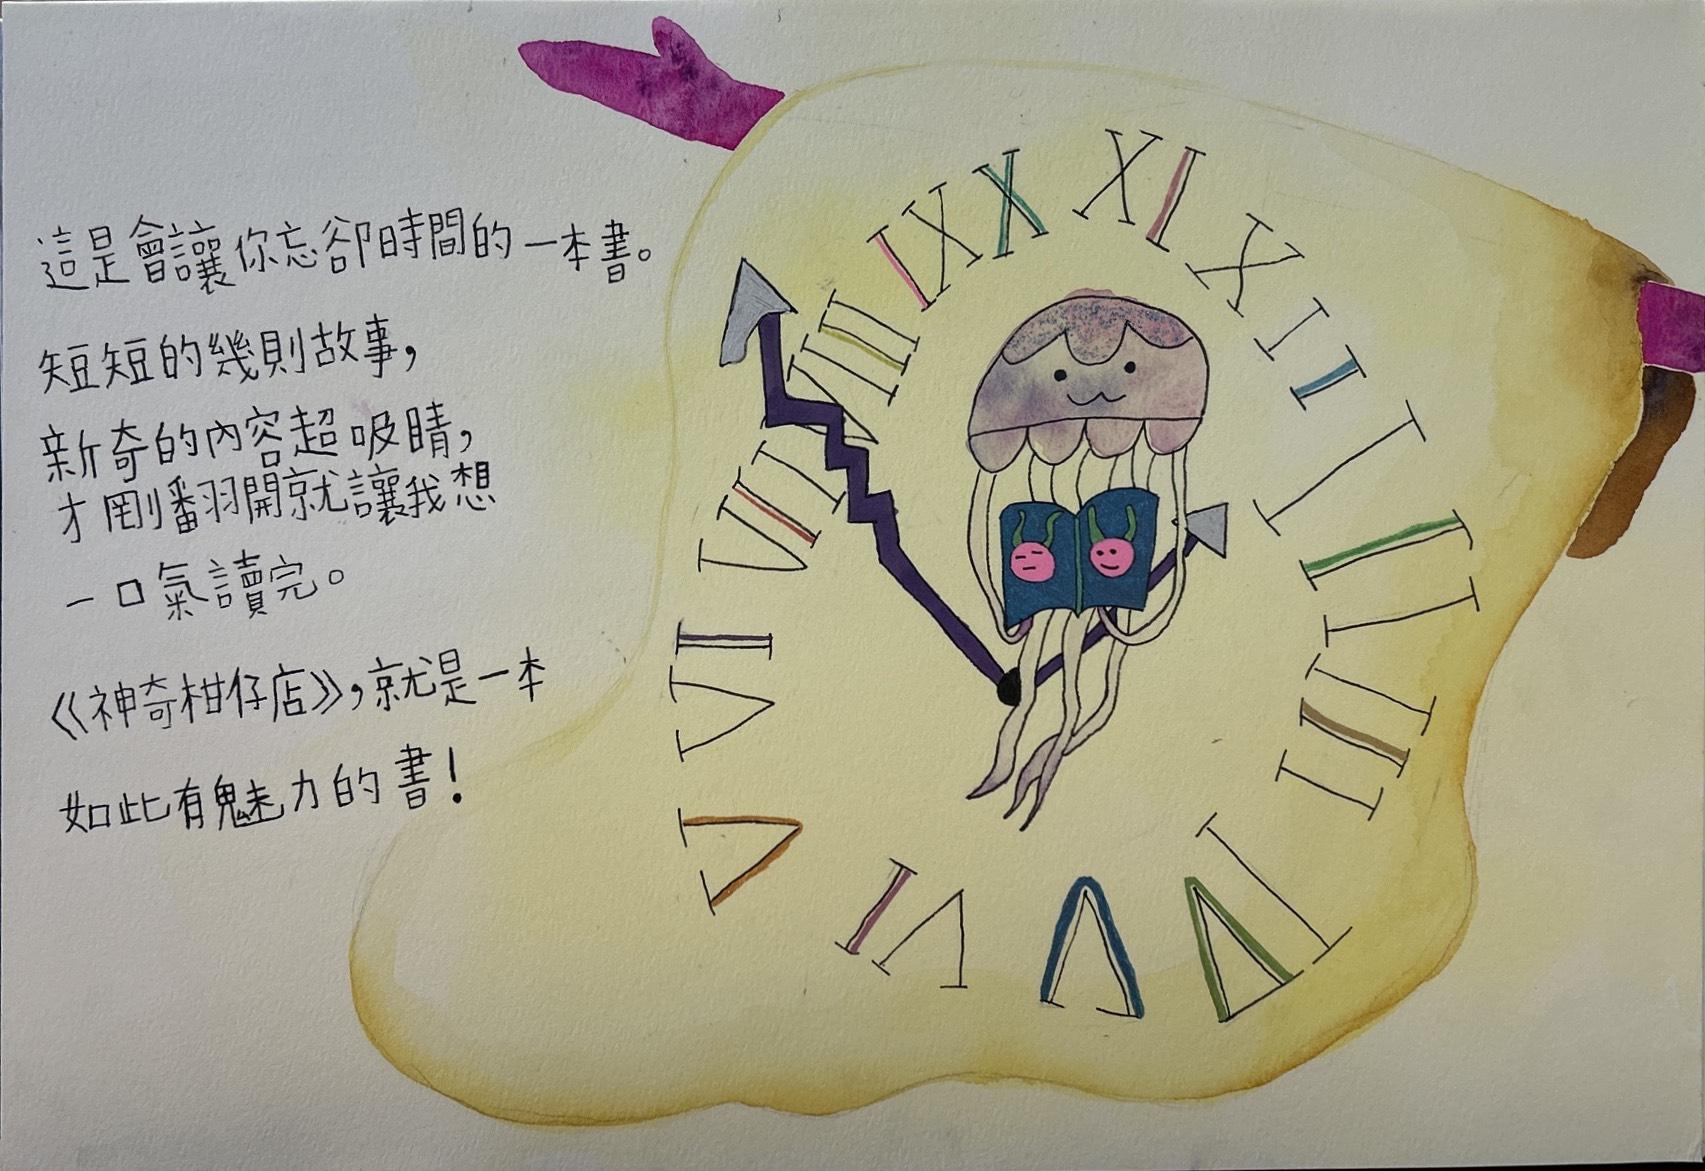 這是會讓你忘卻時間的一本書。
短短的幾則故事，
新奇的內容超吸睛，
才剛翻開就讓我想
一口氣讀完。
《神奇柑仔店》，就是一本
如此有魅力的書！
XII
I
II
III
IV
V
VI
V
VI
VII
VIII
IX
X
XI